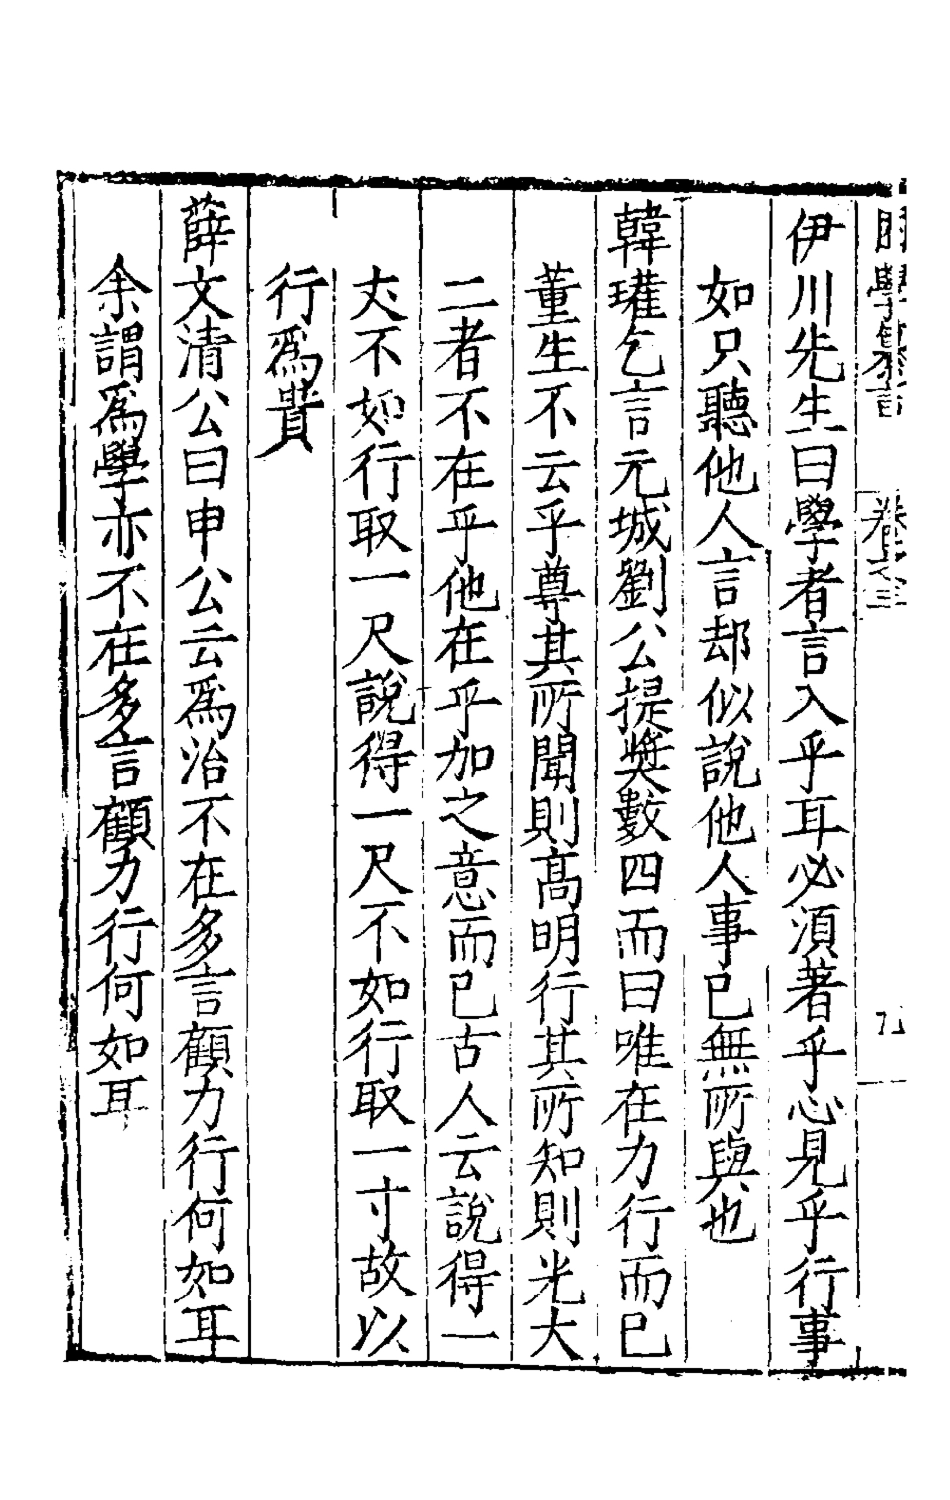 困學纂言 卷之三 九
伊川先生曰學者言入乎耳必須著乎心見乎行事
如只聽他人言却似說他人事已無所與也
韓瓘乞言元城劉公提奬數四而曰唯在力行而已
董生不云乎尊其所聞則高明行其所知則光大
二者不在乎他在乎加之意而已古人云說得一
丈不如行取一尺說得一尺不如行取一寸故以
行爲貴
薛文清公曰申公云爲治不在多言顧力行何如耳
余謂爲學亦不在多言顧力行何如耳